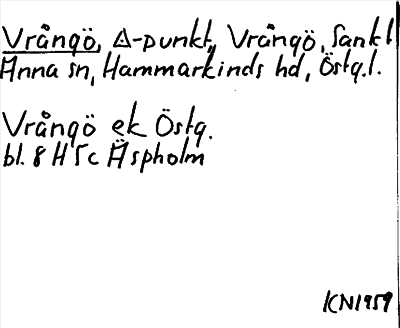 Vrångö, △-punkt, Vrångö, Sankt
Anna sn, Hammarkinds hd, Östg.l.
Vrångö ek Östg.
bl. 8 H 5c Äspholm
KN1959